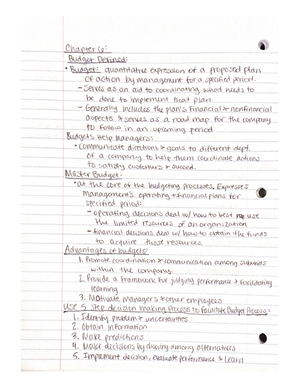 Chapter 6:
Budget Defined:
• Budget: quantitative expression of a proposed plan
of action by management for a specified period.
- Serves as an aid to coordinating what needs to
be done to implement that plan
- Generally includes the plan's financial & nonfinancial
aspects & serves as a road map for the company
to follow in an upcoming period
Budgets Help Managers:
• Communicate directions & goals to different dept.
of a company to help them coordinate actions
to satisfy customers & succeed.
Master Budget:
• at the core of the budgeting processes, Expresses
management's operating & financial plans for
specified period:
- operating decisions deal w/ how to best use
the limited resources of an organization
- financial decisions deal w/ how to obtain the funds
to acquire those resources.
Advantages of budgets:
1. Promote coordination & communication among subunits
within the company
2. Provide a framework for judging performance & facilitating
learning
3. Motivate managers & other employees
Use 5 Step decision making Process to Facilitate Budget Process:
1. Identify problem & uncertainties
2. Obtain information
3. Make predictions
4. Make decisions by choosing among alternatives
5. Implement decision, evaluate performance & learn